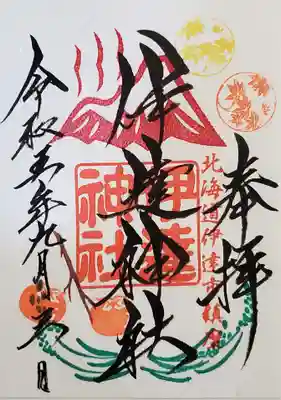 奉拝
北海道伊達市鎮座
伊達神社
伊達
神社
令和五年九月 日